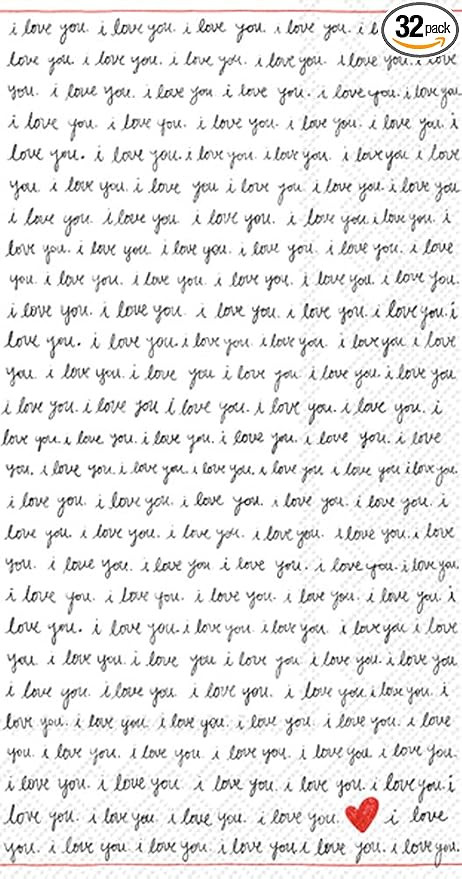 32 pack
i love you. i love you. i love you. i love you. i l
love you. i love you. i love you. i love you. i love you. i love
you. i love you. i love you. i love you. i love you. i love you
i love you. i love you. i love you. i love you. i love you. i
love you. i love you. i love you. i love you. i love you i love
you. i love you. i love you i love you. i love you. i love you
i love you. i love you i love you. i love you. i love you. i
love you. i love you. i love you. i love you. i love you. i love
you. i love you. i love you. i love you. i love you. i love you.
i love you. i love you. i love you. i love you. i love you. i
love you. i love you. i love you. i love you. i love you i love
you. i love you. i love you i love you. i love you. i love you
i love you. i love you i love you. i love you. i love you. i
love you. i love you. i love you. i love you. i love you. i love
you. i love you. i love you. i love you. i love you i love you i love you.
i love you. i love you. i love you. i love you. i love you. i
love you. i love you. i love you. i love you. i love you. i love
you. i love you. i love you i love you. i love you. i love you
i love you. i love you. i love you. i love you. i love you. i
love you. i love you. i love you. i love you. i love you i love
you. i love you. i love you i love you. i love you. i love you
i love you. i love you i love you. i love you. i love you. i
love you. i love you. i love you. i love you. i love you. i love
you. i love you. i love you. i love you. i love you. i love you.
i love you. i love you. i love you. i love you. i love you. i
love you. i love you. i love you. i love you. i love
you. i love you. i love you. i love you. i love you. i love you.